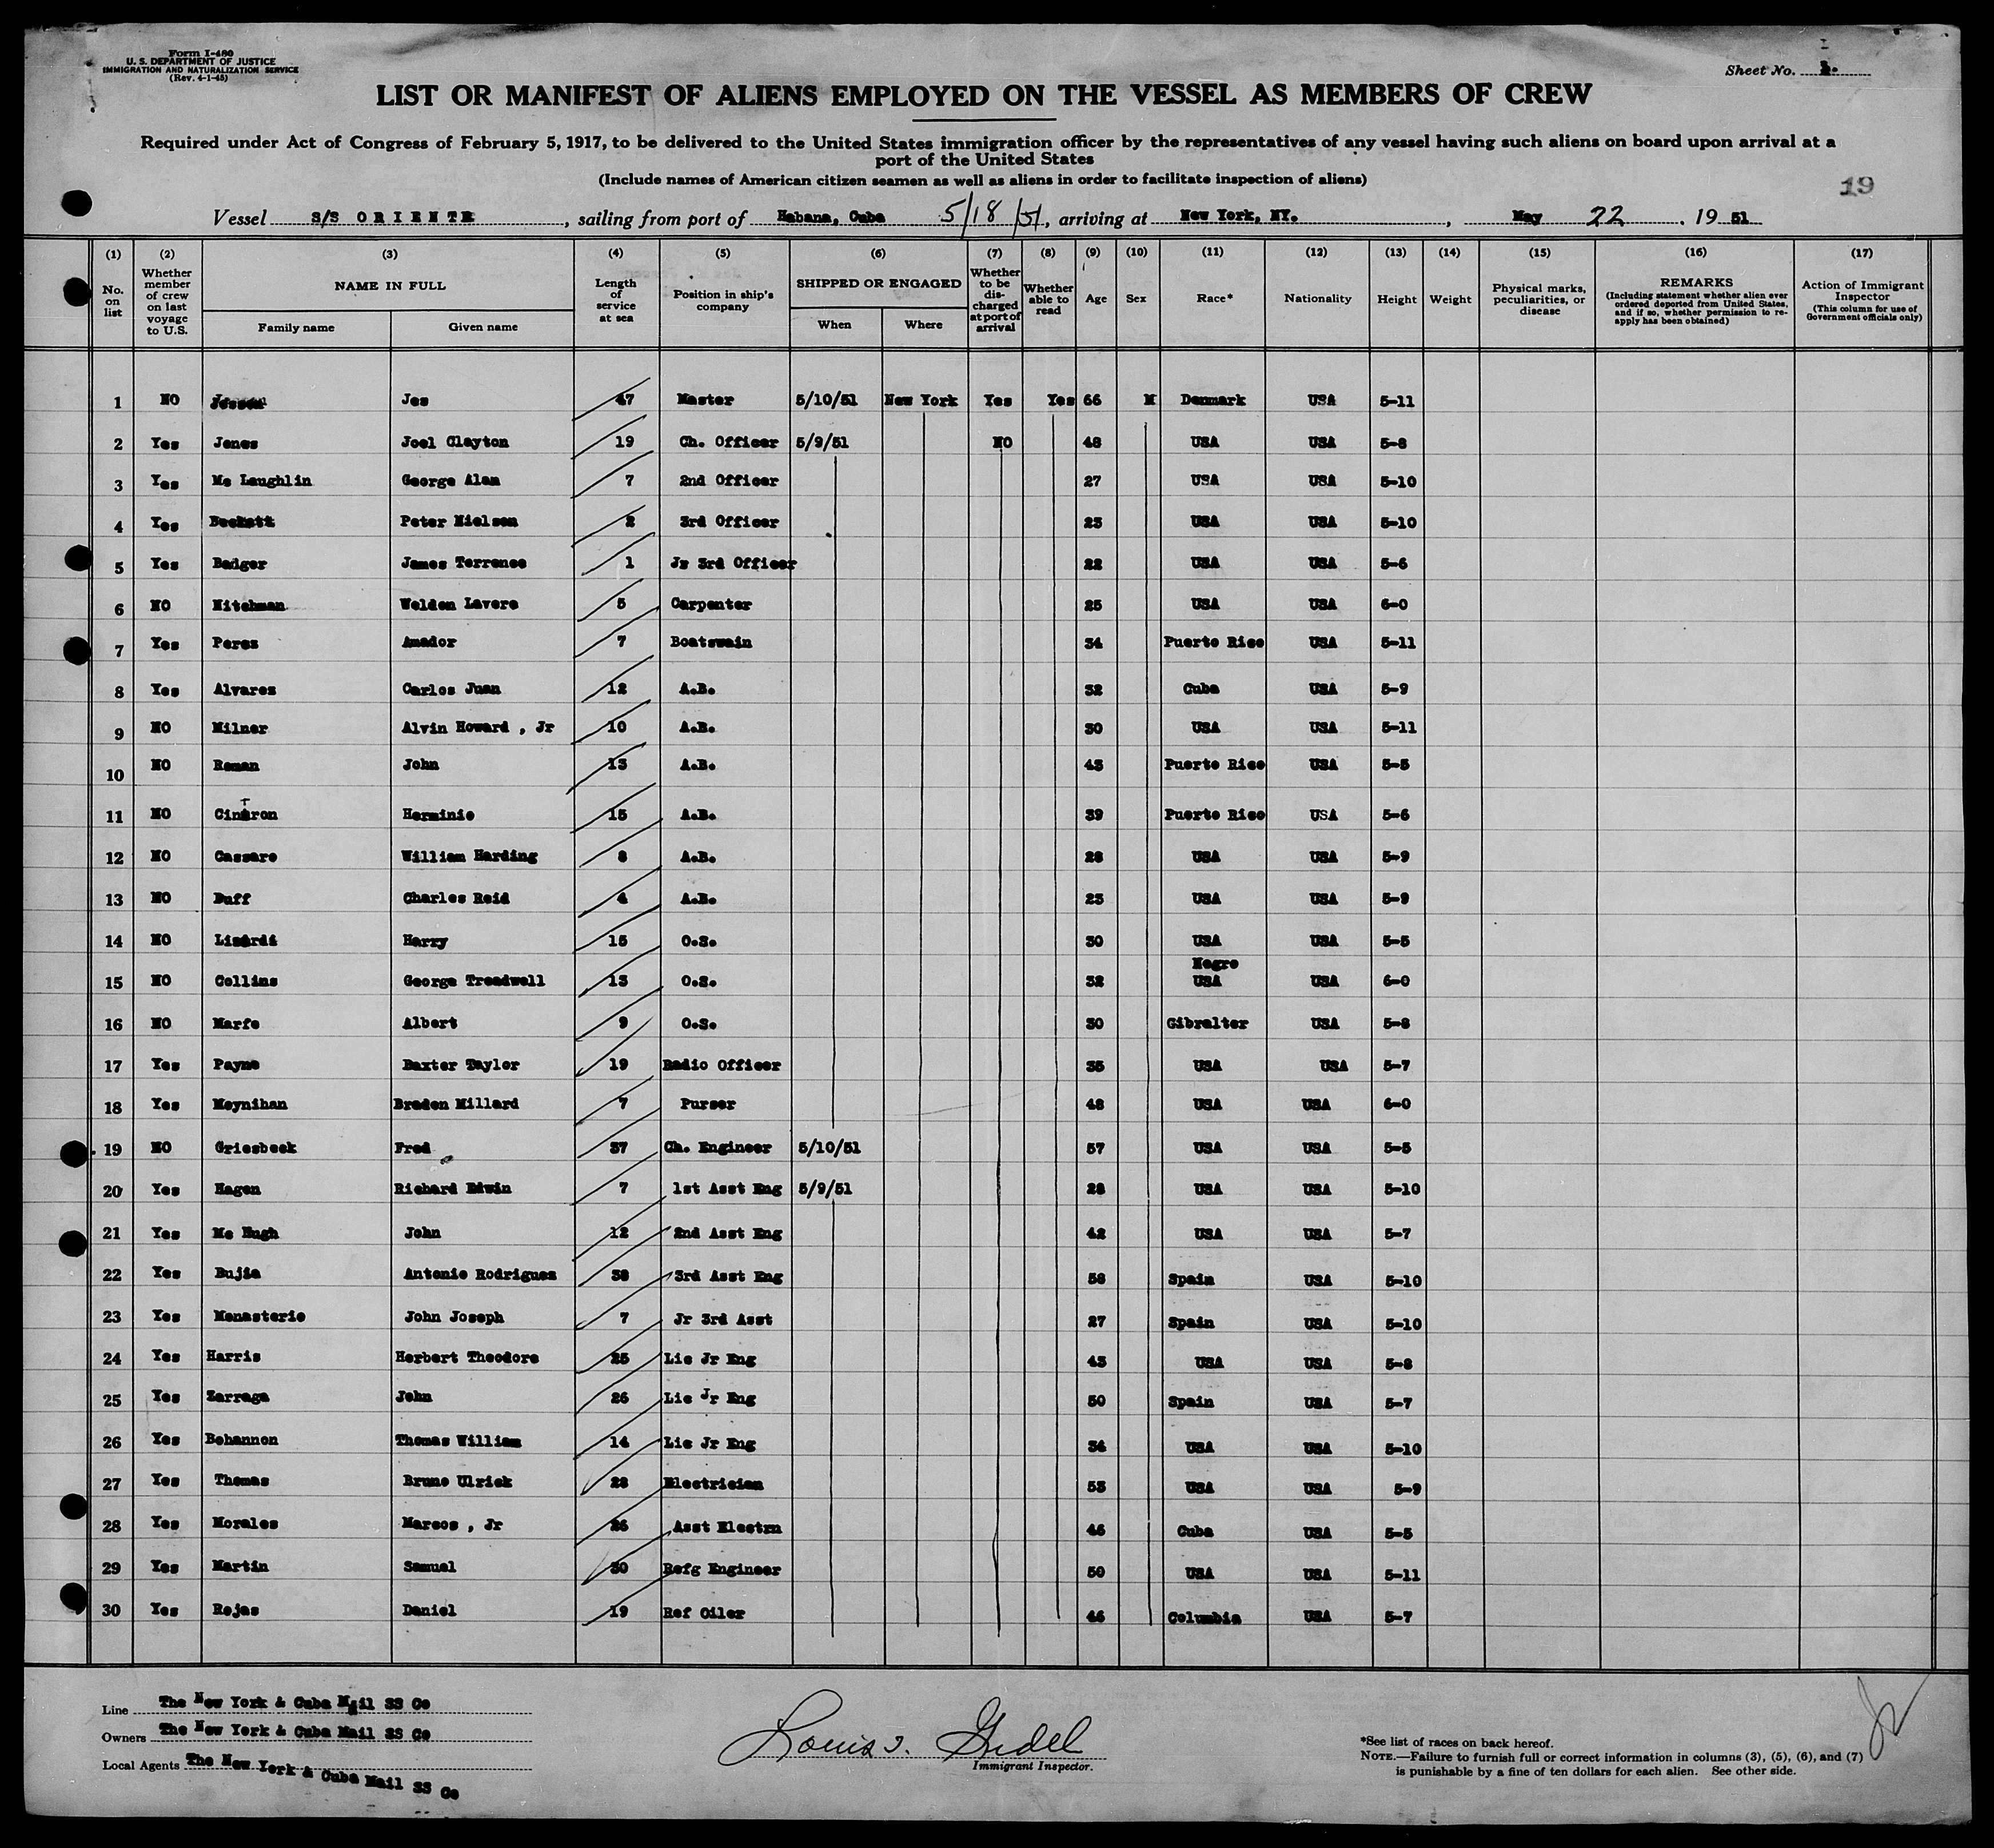 Form I-480
U. S. DEPARTMENT OF JUSTICE
IMMIGRATION AND NATURALIZATION SERVICE
(Rev. 4-1-45)
Sheet No. 1.
LIST OR MANIFEST OF ALIENS EMPLOYED ON THE VESSEL AS MEMBERS OF CREW
Required under Act of Congress of February 5, 1917, to be delivered to the United States immigration officer by the representatives of any vessel having such aliens on board upon arrival at a
port of the United States
(Include names of American citizen seamen as well as aliens in order to facilitate inspection of aliens)
19
Vessel S/S ORIENTE, sailing from port of Habana, Cuba 5/18/51, arriving at New York, NY., May 22, 19 51
(1) (2) (3) (4) (5) (6) (7) (8) (9) (10) (11) (12) (13) (14) (15) (16) (17)
No. on list Whether member of crew on last voyage to U.S. NAME IN FULL Family name Given name Length of service at sea Position in ship's company SHIPPED OR ENGAGED When Where Whether to be discharged at port of arrival Whether able to read Age Sex Race* Nationality Height Weight Physical marks, peculiarities, or disease REMARKS (Including statement whether alien ever ordered deported from United States, and if so, whether permission to reapply has been obtained) Action of Immigrant Inspector (This column for use of Government officials only)
1 NO Jessen Jes 47 Master 5/10/51 New York Yes Yes 66 M Denmark USA 5-11
2 Yes Jones Joel Clayton 19 Ch. Officer 5/9/51 NO 48 USA USA 5-8
3 Yes Mc Laughlin George Alan 7 2nd Officer 27 USA USA 5-10
4 Yes Beckett Peter Nielsen 2 3rd Officer 23 USA USA 5-10
5 Yes Badger James Terrence 1 Jr 3rd Officer 22 USA USA 5-6
6 NO Hitchman Weldon Lavere 5 Carpenter 25 USA USA 6-0
7 Yes Perez Amador 7 Boatswain 34 Puerto Rico USA 5-11
8 Yes Alvarez Carlos Juan 12 A.B. 32 Cuba USA 5-9
9 NO Milner Alvin Howard , Jr 10 A.B. 30 USA USA 5-11
10 NO Roman John 13 A.B. 43 Puerto Rico USA 5-5
11 NO Cintron Herminio 15 A.B. 39 Puerto Rico USA 5-6
12 NO Cassaro William Harding 8 A.B. 28 USA USA 5-9
13 NO Duff Charles Reid 4 A.B. 23 USA USA 5-9
14 NO Harry 15 O.S. 30 USA USA 5-5
15 NO Collins George Treadwell 13 O.S. 32 Negro USA USA 6-0
16 NO Marfe Albert 9 O.S. 30 Gibralter USA 5-8
17 Yes Payne Baxter Taylor 19 Radio Officer 35 USA USA 5-7
18 Yes Moynihan Braden Millard 7 Purser 48 USA USA 6-0
19 NO Griesbeck Fred 37 Ch. Engineer 5/10/51 57 USA USA 5-5
20 Yes Hagen Richard Edwin 7 1st Asst Eng 5/9/51 28 USA USA 5-10
21 Yes Mc Hugh John 12 2nd Asst Eng 42 USA USA 5-7
22 Yes Bujia Antonio Rodriguez 38 3rd Asst Eng 58 Spain USA 5-10
23 Yes Monasterio John Joseph 7 Jr 3rd Asst 27 Spain USA 5-10
24 Yes Harris Herbert Theodore 25 Lic Jr Eng 43 USA USA 5-8
25 Yes Zarraga John 26 Lic Jr Eng 50 Spain USA 5-7
26 Yes Bohannon Thomas William 14 Lic Jr Eng 34 USA USA 5-10
27 Yes Thomas Bruno Ulrick 28 Electrician 53 USA USA 5-9
28 Yes Morales Marcos , Jr 26 Asst Electrn 46 Cuba USA 5-5
29 Yes Martin Samuel 30 Refg Engineer 50 USA USA 5-11
30 Yes Rojas Daniel 19 Ref Oiler 46 Columbia USA 5-7
Line The New York & Cuba Mail SS Co
Owners The New York & Cuba Mail SS Co
Local Agents The New York & Cuba Mail SS Co
Louis
Immigrant Inspector.
*See list of races on back hereof.
NOTE.—Failure to furnish full or correct information in columns (3), (5), (6), and (7)
is punishable by a fine of ten dollars for each alien. See other side.